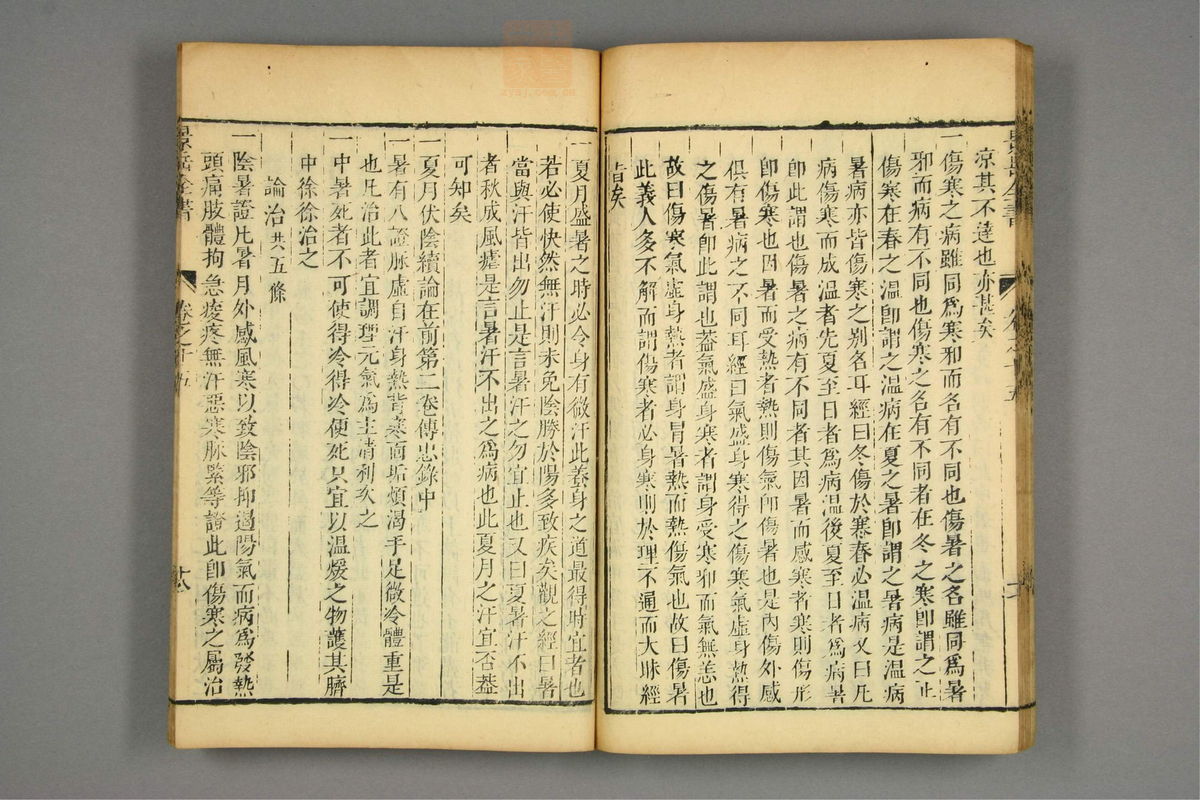 凉其不達也亦甚矣
一傷寒之病雖同為寒邪而名有不同也傷暑之名雖同為暑
邪而病有不同也傷寒之名有不同者在冬之寒卽謂之正
傷寒在春之温卽謂之温病在夏之暑卽謂之暑病是温病
暑病亦皆傷寒之别名耳經曰冬傷於寒春必温病又曰凡
病傷寒而成温者先夏至日者為病温後夏至日者為病暑
卽此謂也傷暑之病有不同者其因暑而感寒者寒則傷形
卽傷寒也因暑而受熱者熱則傷氣卽傷暑也是內傷外感
俱有暑病之不同耳經曰氣盛身寒得之傷寒氣虛身熱得
之傷暑卽此謂也葢氣盛身寒者謂身受寒邪而氣無恙也
故曰傷寒氣虛身熱者謂身冒暑熱而熱傷氣也故曰傷暑
此義人多不解而謂傷寒者必身寒則於理不通而大昧經
旨矣
一夏月盛暑之時必令身有微汗此養身之道最得時宜者也
若必使快然無汗則未免陰勝於陽多致疾矣觀之經曰暑
當與汗皆出勿止是言暑汗之勿宜止也又曰夏暑汗不出
者秋成風瘧是言暑汗不出之為病也此夏月之汗宜否葢
可知矣
一夏月伏陰續論在前第二卷傳忠錄中
一暑有八證脉虛自汗身熱背寒面垢煩渴手足微冷體重是
也凡治此者宜調理元氣為主清利次之
一中暑死者不可使得冷得冷便死只宜以温煖之物護其臍
中徐徐治之
論治共五條
一陰暑證凡暑月外感風寒以致陰邪抑遏陽氣而病為發熱
頭痛肢體拘急痠疼無汗惡寒脉緊等證此卽傷寒之屬治
景岳全書
卷之十五
十八